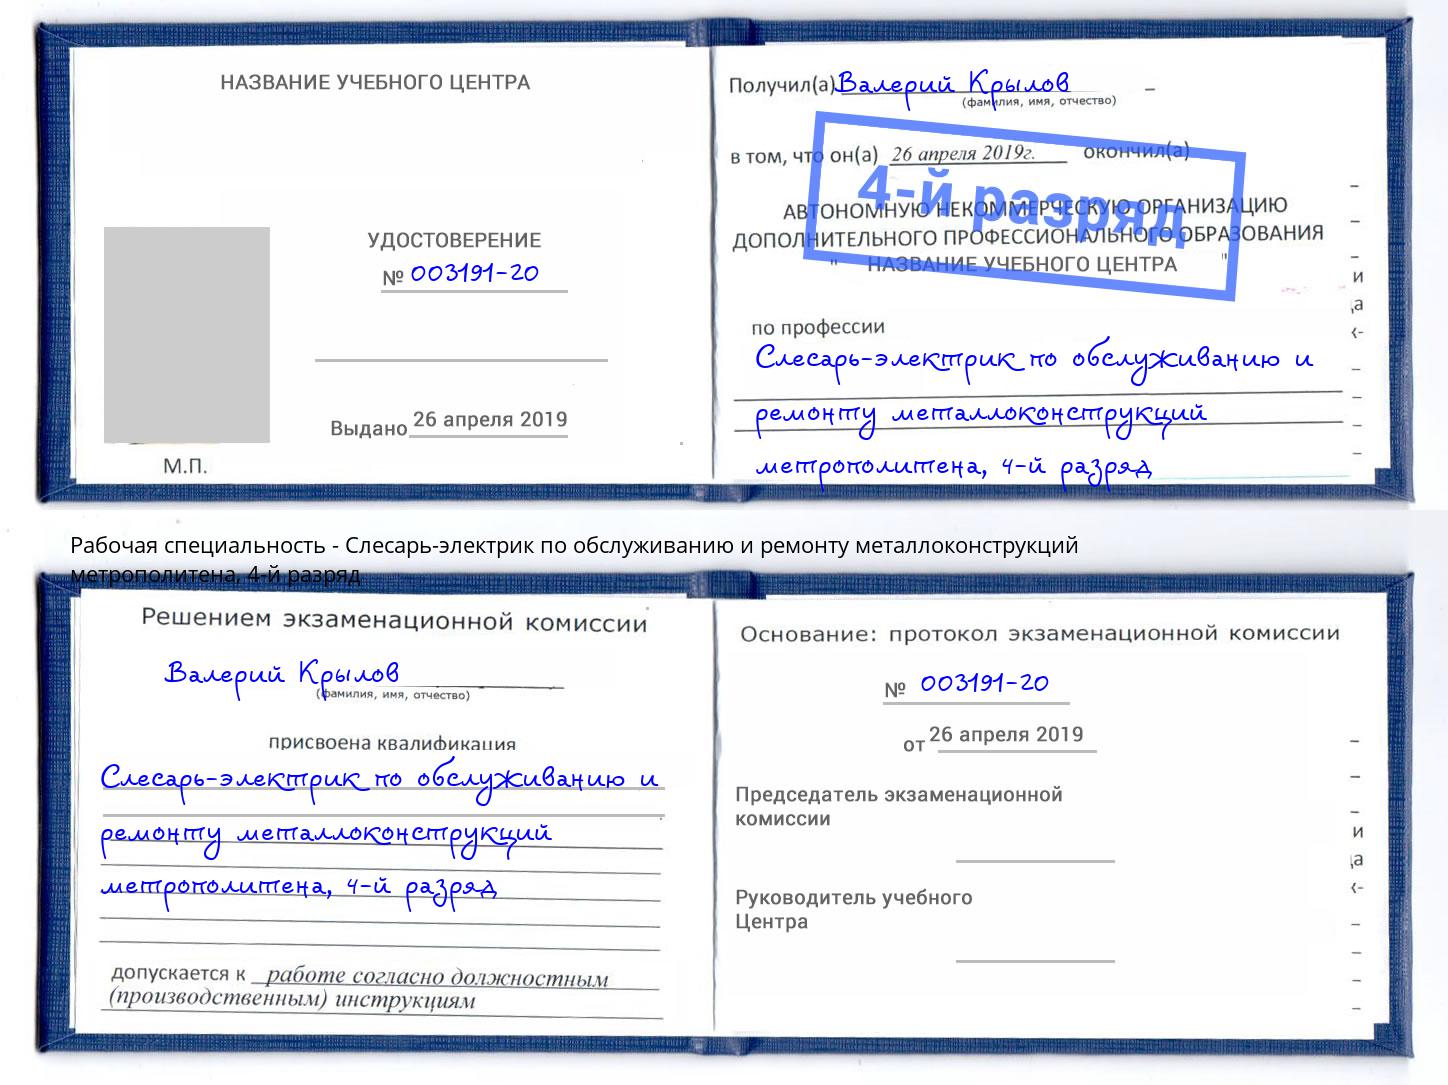 НАЗВАНИЕ УЧЕБНОГО ЦЕНТРА
УДОСТОВЕРЕНИЕ
№ 003191-20
Выдано 26 апреля 2019
М.П.
Получил(а) Валерий Крылов
(фамилия, имя, отчество)
в том, что он(а) 26 апреля 2019г. окончил(а)
4-й разряд
АВТОНОМНУЮ НЕКОММЕРЧЕСКУЮ ОРГАНИЗАЦИЮ
ДОПОЛНИТЕЛЬНОГО ПРОФЕССИОНАЛЬНОГО ОБРАЗОВАНИЯ
" НАЗВАНИЕ УЧЕБНОГО ЦЕНТРА "
по профессии
Слесарь-электрик по обслуживанию и
ремонту металлоконструкций
метрополитена, 4-й разряд
Рабочая специальность - Слесарь-электрик по обслуживанию и ремонту металлоконструкций
метрополитена, 4-й разряд
Решением экзаменационной комиссии
Валерий Крылов
(фамилия, имя, отчество)
присвоена квалификация
Слесарь-электрик по обслуживанию и
ремонту металлоконструкций
метрополитена, 4-й разряд
допускается к работе согласно должностным
(производственным) инструкциям
Основание: протокол экзаменационной комиссии
№ 003191-20
от 26 апреля 2019
Председатель экзаменационной
комиссии
Руководитель учебного
Центра